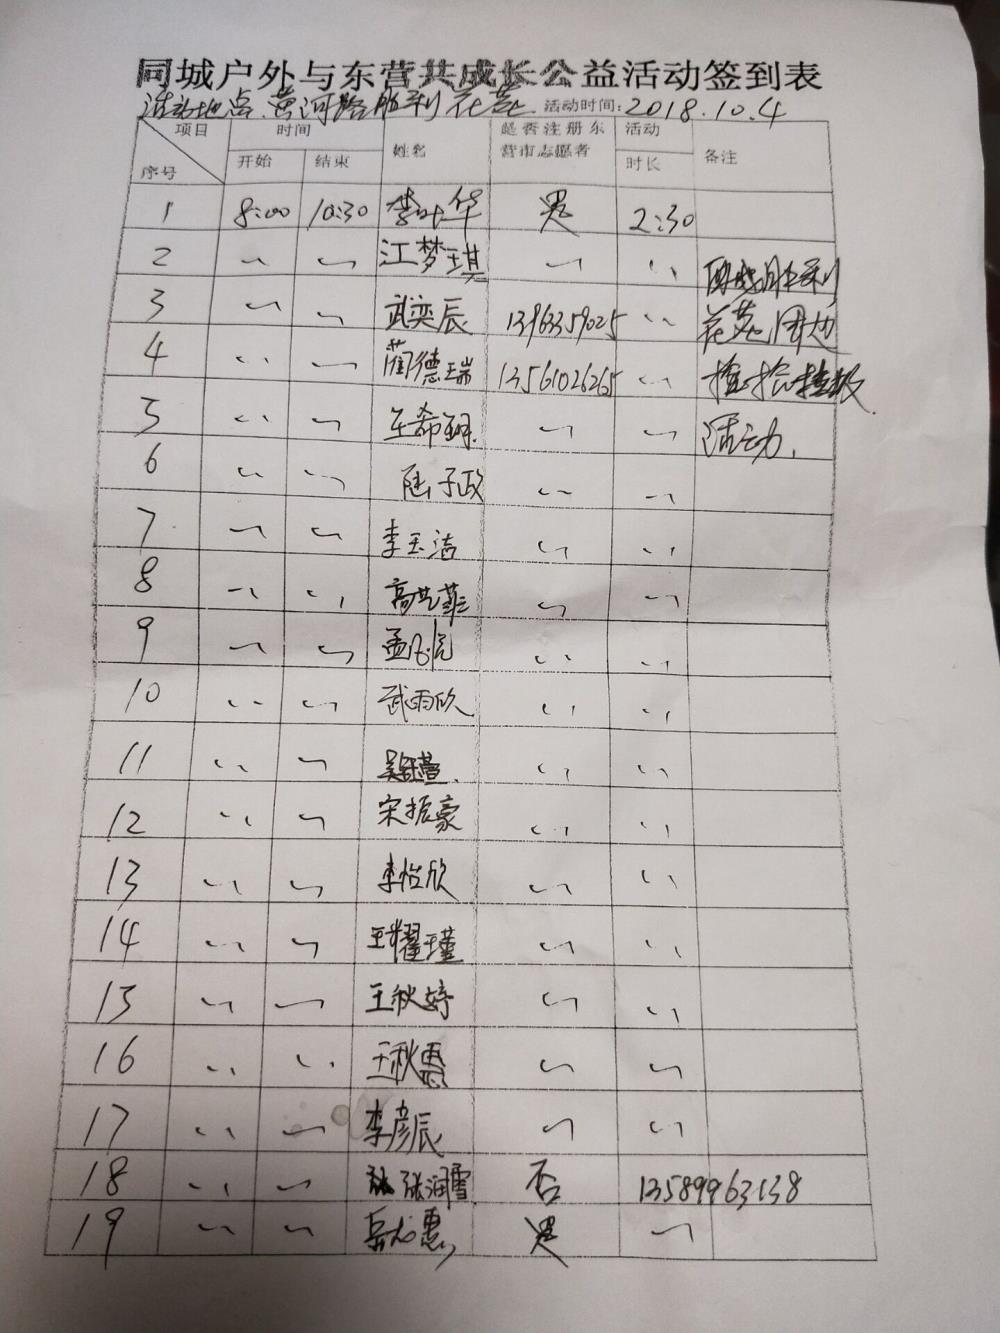 同城户外与东营共成长公益活动签到表
活动地点:黄河路胜利花苑 活动时间:2018.10.4
项目 时间 姓名 是否注册东营市志愿者 活动时长 备注
序号 开始 结束
1 8:00 10:30 李叶华 是 2:30
2 〃 〃 江梦琪 〃 〃
3 〃 〃 武奕辰 13963359025 〃 花苑周边
4 〃 〃 蔺德瑞 13561026265 〃 捡拾垃圾
5 〃 〃 王希 〃 〃 活动.
6 〃 〃 陆子政 〃 〃
7 〃 〃 李玉洁 〃 〃
8 〃 〃 高艺菲 〃 〃
9 〃 〃 孟凡 〃 〃
10 〃 〃 武雨欣 〃 〃
11 〃 〃 吴 萱 〃 〃
12 〃 〃 宋振豪 〃 〃
13 〃 〃 李怡欣 〃 〃
14 〃 〃 王耀瑾 〃 〃
15 〃 〃 王秋婷 〃 〃
16 〃 〃 王秋惠 〃 〃
17 〃 〃 李彦辰 〃 〃
18 〃 〃 张润雪 否 13589963138
19 〃 〃 岳 惠 是 〃